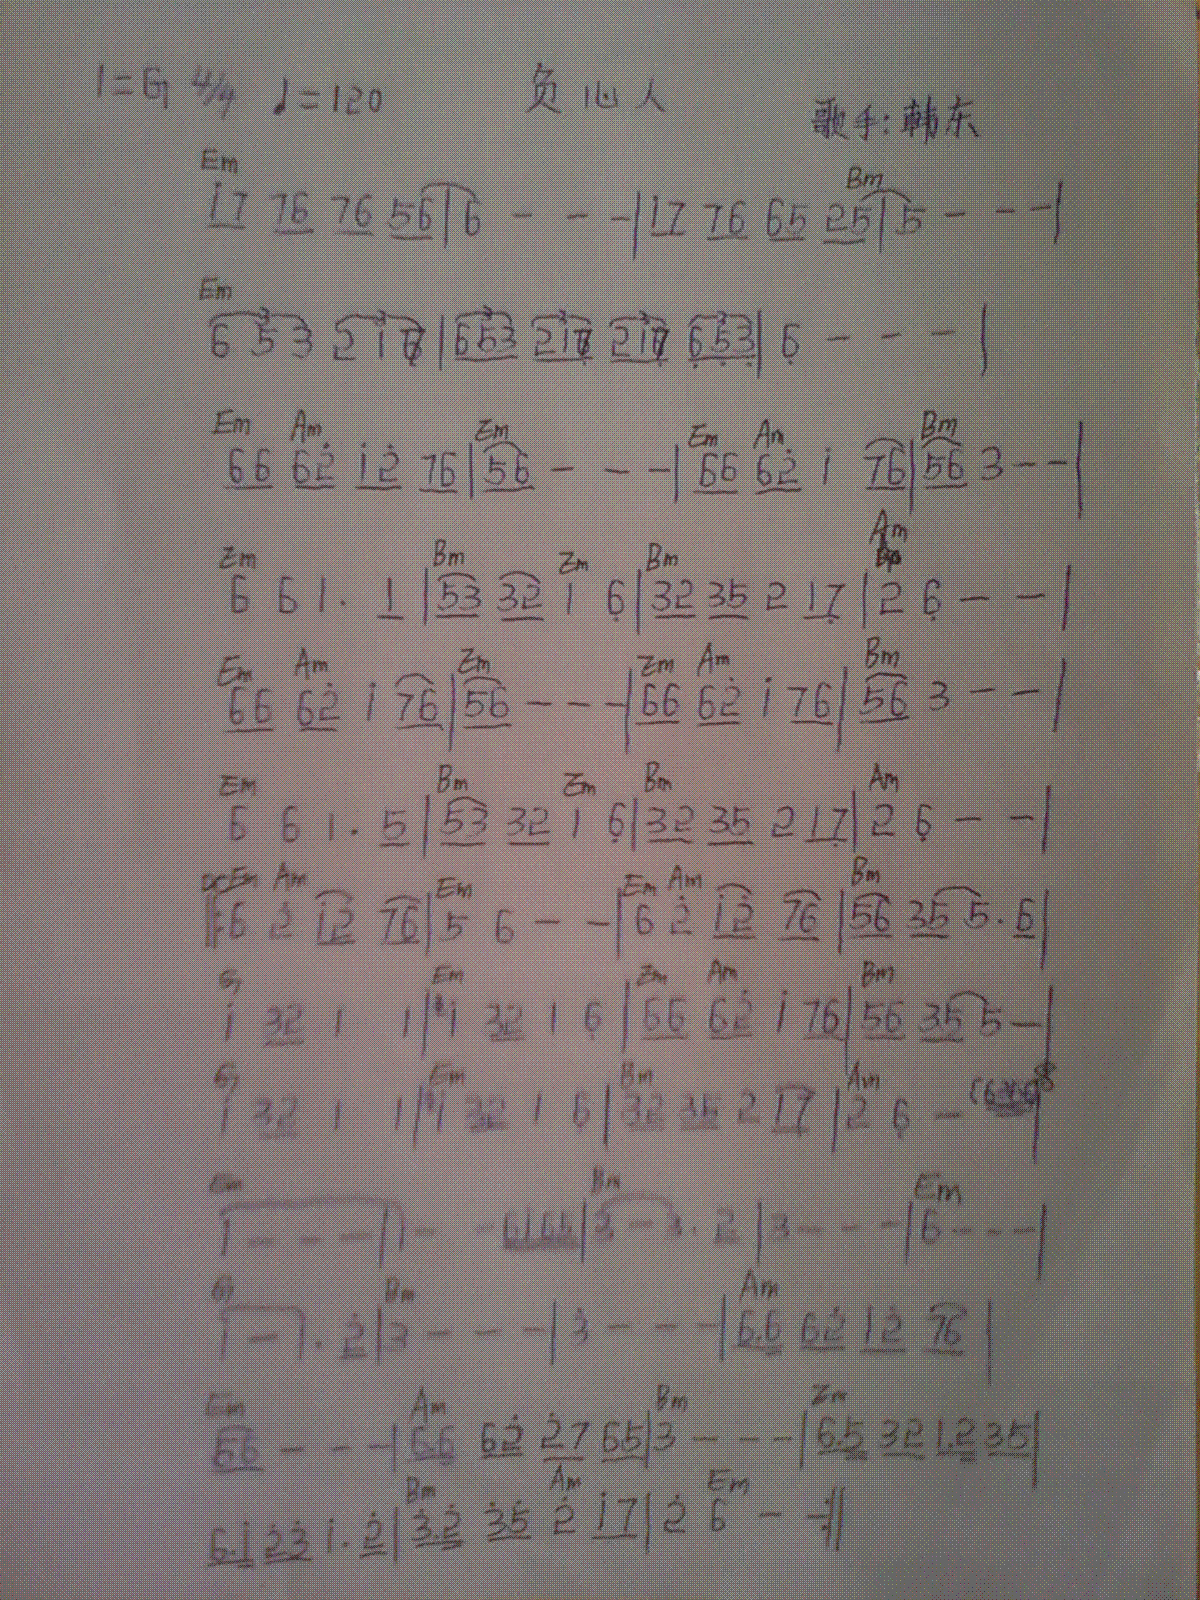 1=G 4/4 ♩=120 负心人
歌手:韩东
Em Bm
i7 76 76 56 | 6 - - - | 17 76 65 25 | 5 - - - |
Em
6 5 3 2 1 | 653 21 21 653 | 6 - - - |
Em Am Em Em Am Bm
66 62 i2 76 | 56 - - - | 66 62 i 76 | 56 3 - - |
Em Bm Em Bm Am
6 6 1. 1 | 53 32 1 6 | 32 35 2 17 | 2 6 - - |
Em Am Em Em Am Bm
66 62 i 76 | 56 - - - | 66 62 i 76 | 56 3 - - |
Em Bm Em Bm Am
6 6 1. 5 | 53 32 1 6 | 32 35 2 17 | 2 6 - - |
Em Am Em Em Am Bm
‖: 6 2 i2 76 | 5 6 - - | 6 2 i2 76 | 56 35 5. 6 |
G Em Em Am Bm
1 32 1 1 | 1 32 1 6 | 66 62 i 76 | 56 35 5 - |
G Em Bm Am
1 32 1 1 | 1 32 1 6 | 32 35 2 17 | 2 6 -
Em Bm Em
1 - - - | 1 - - | 3 - 3. 2 | 3 - - - | 6 - - - |
G Bm Am
1 - 1. 2 | 3 - - - | 3 - - - | 6.6 62 12 76 |
Em Am Bm Em
56 - - - | 6.6 62 27 65 | 3 - - - | 6.5 32 1.2 35 |
Bm Am Em
6.i 23 i. 2 | 3.2 35 2 i7 | 2 6 - - :‖